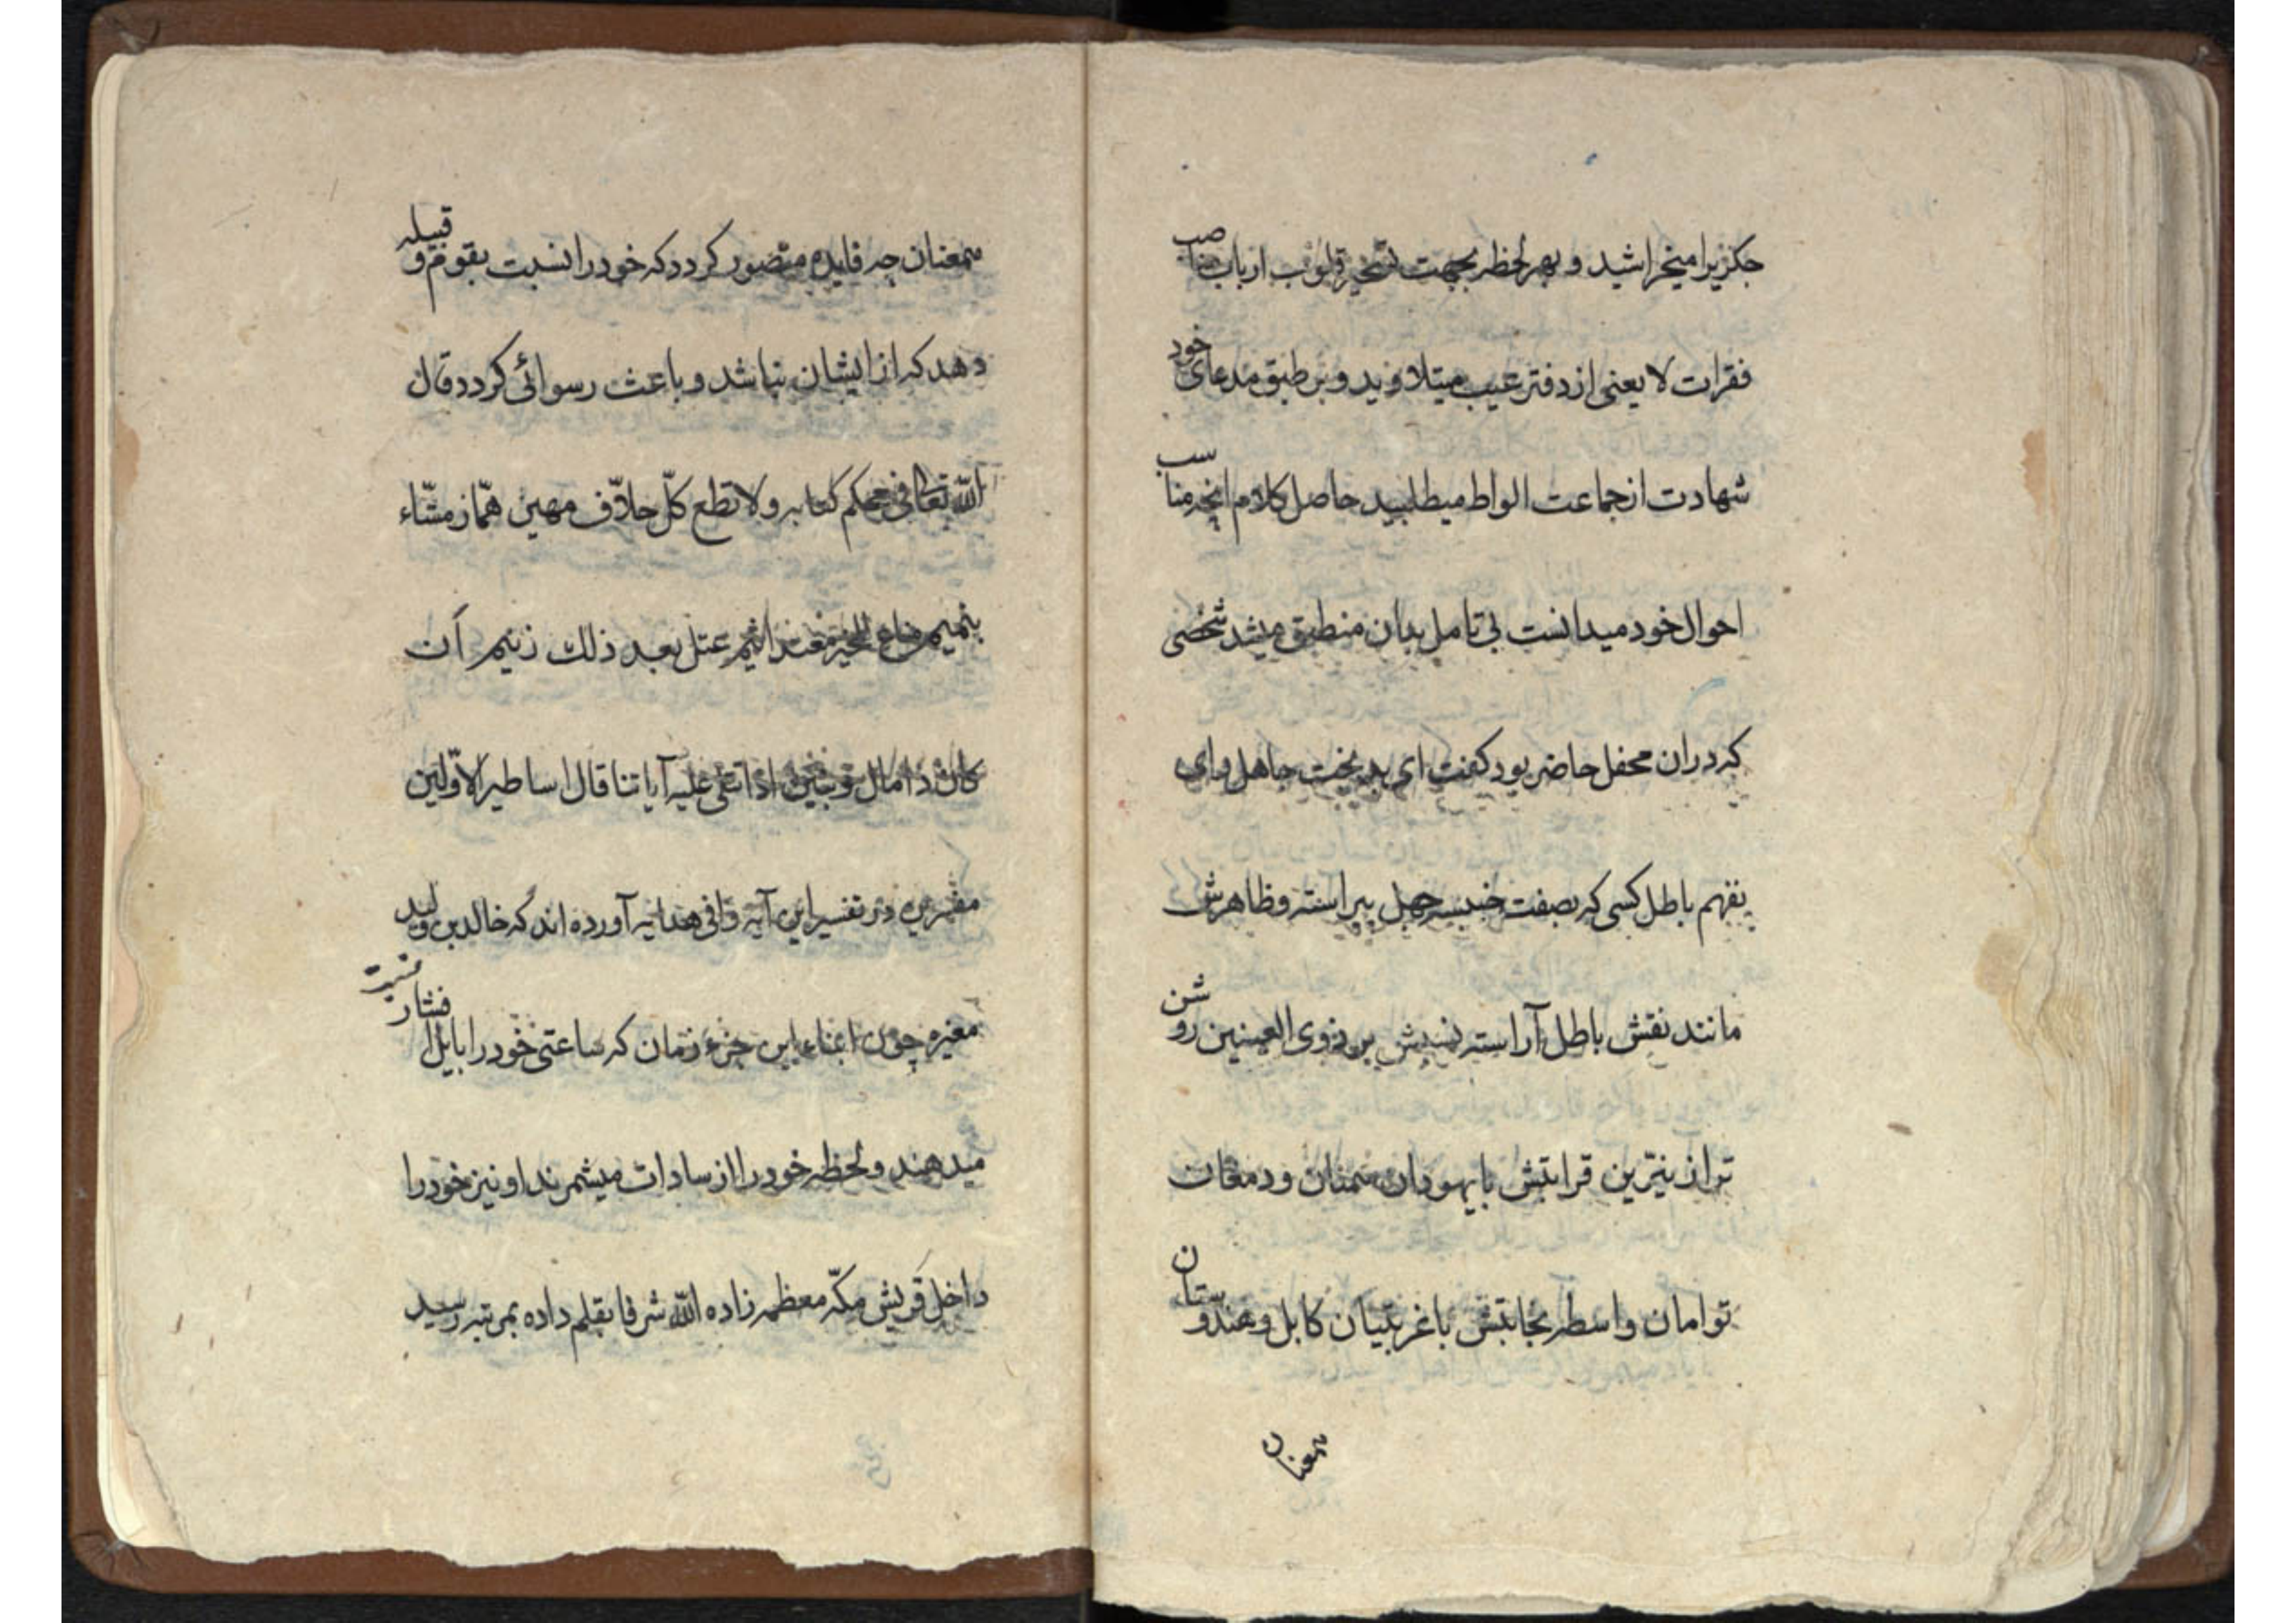 جکزیرا میخراشید و بهر لحظه بجهت تسخیر قلوب ارباب مناصب
فقرات لا یعنی از دفتر عیب میتلاوید و بر طبق مدعای خود
شهادت از جماعت الواط میطلبید حاصل کلام انچه مناسب
احوال خود میدانست بی تامل بدان منطبق میشد شخصی
که دران محفل حاضر بود کفت ای بدبخت جاهل وای
بفهم باطل کسی که بصفت خبیسه جهل پیراسته و ظاهرش
مانند نقش باطل آراسته نسبش بر ذوی العینین روشن
تر از نیّرین قرابتش با یهودان سمنان ودمغان
توامان واسطه نجابتش با غربتیان کابل و هندوستان
سمعنان
سمعنان چه فایده متصور کردد که خود را نسبت بقوم و قبیله
دهد که از ایشان نباشد و باعث رسوائی کردد قال
الله تعالی فی محکم کتابه ولا تطع کلّ حلاّف مهین همّاز مشّاء
بنمیم مناع للخیر معتد اثیم عتل بعد ذلك زنیم اَن
کان ذا مال و بنین اذا تتلی علیه آیاتنا قال اساطیر الاوّلین
مفسرین در تفسیر این آیه وافی هدایه آورده اند که خالد بن ولید
مغیره چون ابناء این جزء زمان که ساعتی خود را بایل افشار نسبت
میدهند و لحظه خود را از سادات میشمرند او نیز خود را
داخل قریش مکّه معظمه زاده الله شرفا بقلم داده بمرتبه رسید